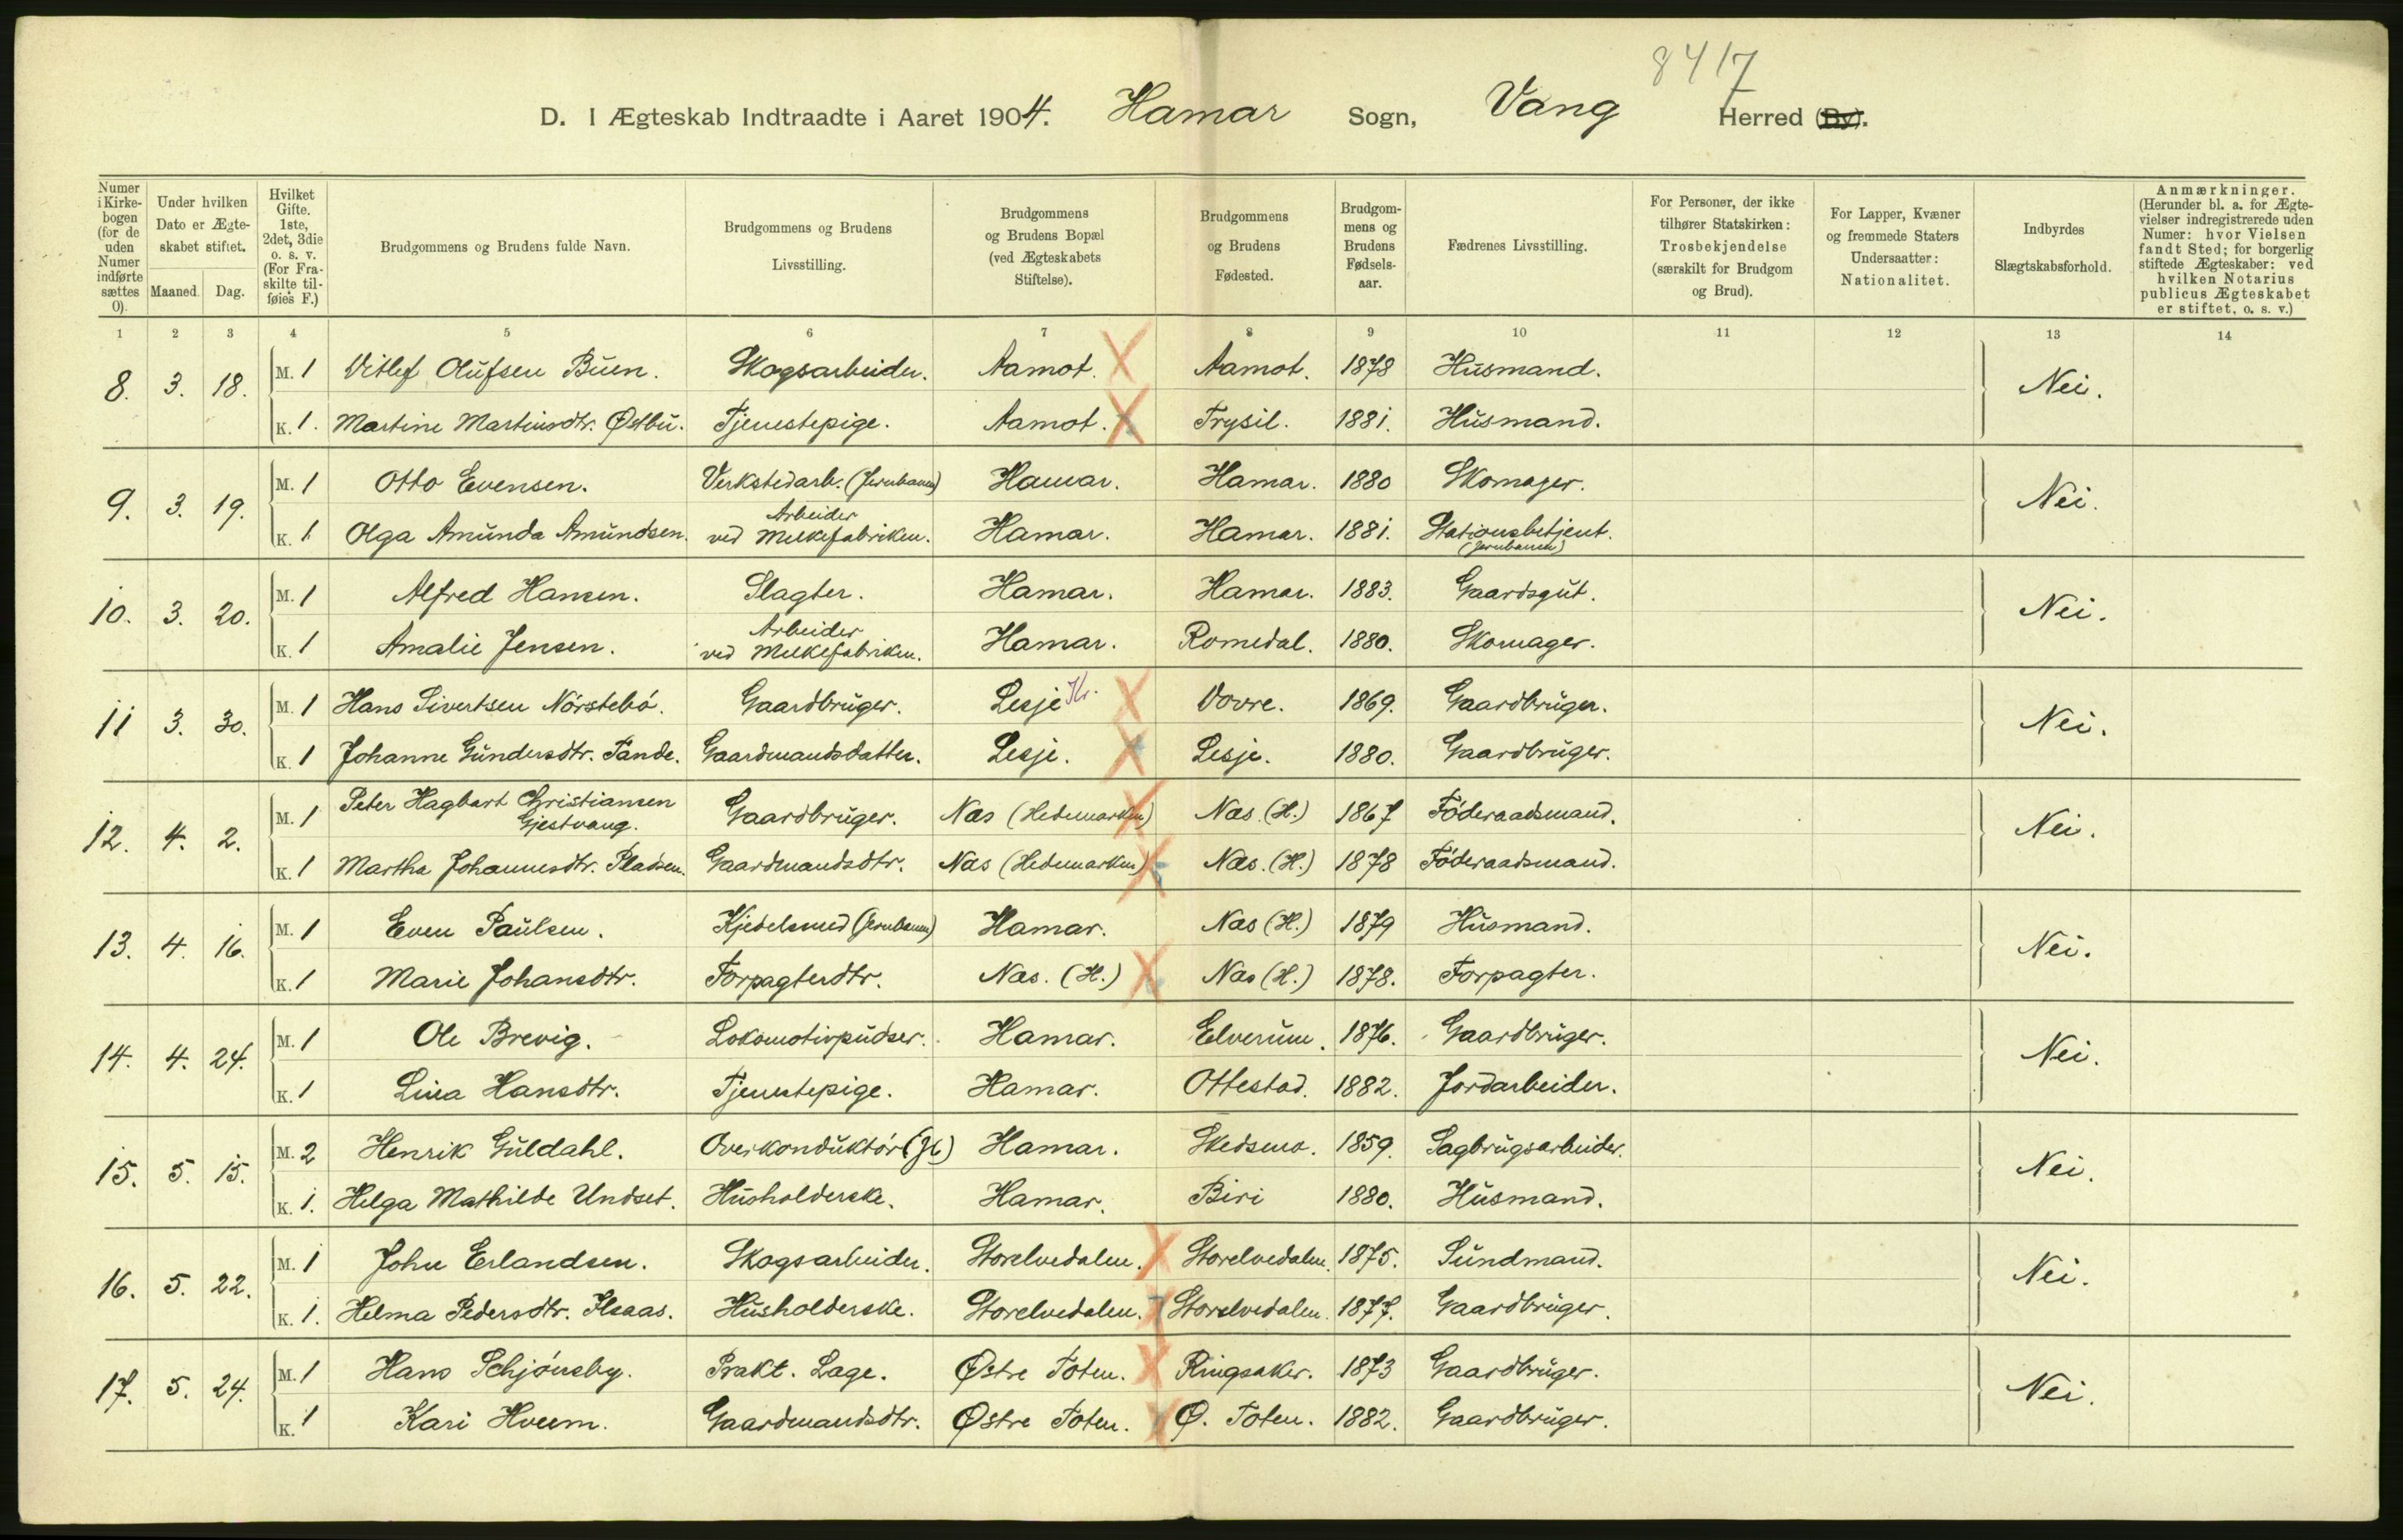 8417
D. I Ægteskab Indtraadte i Aaret 1904. Hamar Sogn, Vang Herred (By).
Numer i Kirkebogen (for de uden Numer indførte sættes 0).
Under hvilken Dato er Ægteskabet stiftet.
Maaned. Dag.
Hvilket Gifte. 1ste, 2det, 3die o. s. v. (For Fraskilte tilføies F.)
Brudgommens og Brudens fulde Navn.
Brudgommens og Brudens Livsstilling.
Brudgommens og Brudens Bopæl (ved Ægteskabets Stiftelse).
Brudgommens og Brudens Fødested.
Brudgommens og Brudens Fødselsaar.
Fædrenes Livsstilling.
For Personer, der ikke tilhører Statskirken: Trosbekjendelse (særskilt for Brudgom og Brud).
For Lapper, Kvæner og fremmede Staters Undersaatter: Nationalitet.
Indbyrdes Slægtskabsforhold.
Anmærkninger. (Herunder bl. a. for Ægtevielser indregistrerede uden Numer: hvor Vielsen fandt Sted; for borgerlig stiftede Ægteskaber: ved hvilken Notarius publicus Ægteskabet er stiftet, o. s. v.)
1 2 3 4 5 6 7 8 9 10 11 12 13 14
8. 3. 18. M. 1 Ditlef Olufsen Buen. Skogsarbeider. Aamot. Aamot. 1878 Husmand. Nei.
K. 1. Martine Martinsdtr. Østbu. Tjenestepige. Aamot. Trysil. 1881. Husmand.
9. 3. 19. M. 1 Otto Evensen. Verkstedarb. (Jernbanen) Hamar. Hamar. 1880 Skomager. Nei.
K. 1 Olga Amunda Amundsen. Arbeider ved Melkefabriken. Hamar. Hamar. 1881. Stationsbetjent. (Jernbanen)
10. 3. 20. M. 1 Alfred Hansen. Slagter. Hamar. Hamar. 1883. Gaardsgut. Nei.
K. 1 Amalie Jensen. Arbeider ved Melkefabriken. Hamar. Romedal. 1880. Skomager.
11 3. 30. M. 1 Hans Sivertsen Nórstebó. Gaardbruger. Lesje Kr. Dovre. 1869. Gaardbruger. Nei.
K. 1 Johanne Gundersdtr. Tande. Gaardmandsdatter. Lesje. Lesje. 1880. Gaardbruger.
12. 4. 2. M. 1 Peter Hagbart Christiansen Gjestvang. Gaardbruger. Næs (Hedemarken) Næs. (H.) 1867 Fóderaadsmand. Nei.
K. 1 Martha Johannesdtr. Pladsen. Gaardmandsdtr. Næs (Hedemarken) Næs. (H.) 1878 Fóderaadsmand.
13. 4. 16. M. 1 Even Paulsen. Kjedelsmed (Jernbanen) Hamar. Næs (H.) 1879 Husmand. Nei.
K. 1 Marie Johansdtr. Forpagterdtr. Næs. (H.) Næs (H.) 1878. Forpagter.
14. 4. 24. M. 1 Ole Brevig. Lokomotivpudser. Hamar. Elverum. 1876. Gaardbruger. Nei.
K. 1 Lina Hansdtr. Tjenestepige. Hamar. Ottestad. 1882. Jordarbeider.
15. 5. 15. M. 2 Henrik Guldahl. Overkonduktór Hamar. Skedsmo. 1859. Sagbrugsarbeider. Nei.
K. 1. Helga Mathilde Undset. Husholderske. Hamar. Biri 1880. Husmand.
16. 5. 22. M. 1 John Erlandsen. Skogsarbeider. Storelvedalen. Storelvedalen. 1875. Sundmand. Nei.
K. 1. Helma Pedersdtr. Husholderske. Storelvedalen. Storelvedalen. 1877. Gaardbruger.
17. 5. 24. M. 1 Hans Schjónsby. Prakt. Læge. Østre Toten. Ringsaker. 1873 Gaardbruger. Nei.
K. 1 Kari Hveem. Gaardmandsdtr. Østre Toten. Ø. Toten. 1882. Gaardbruger.